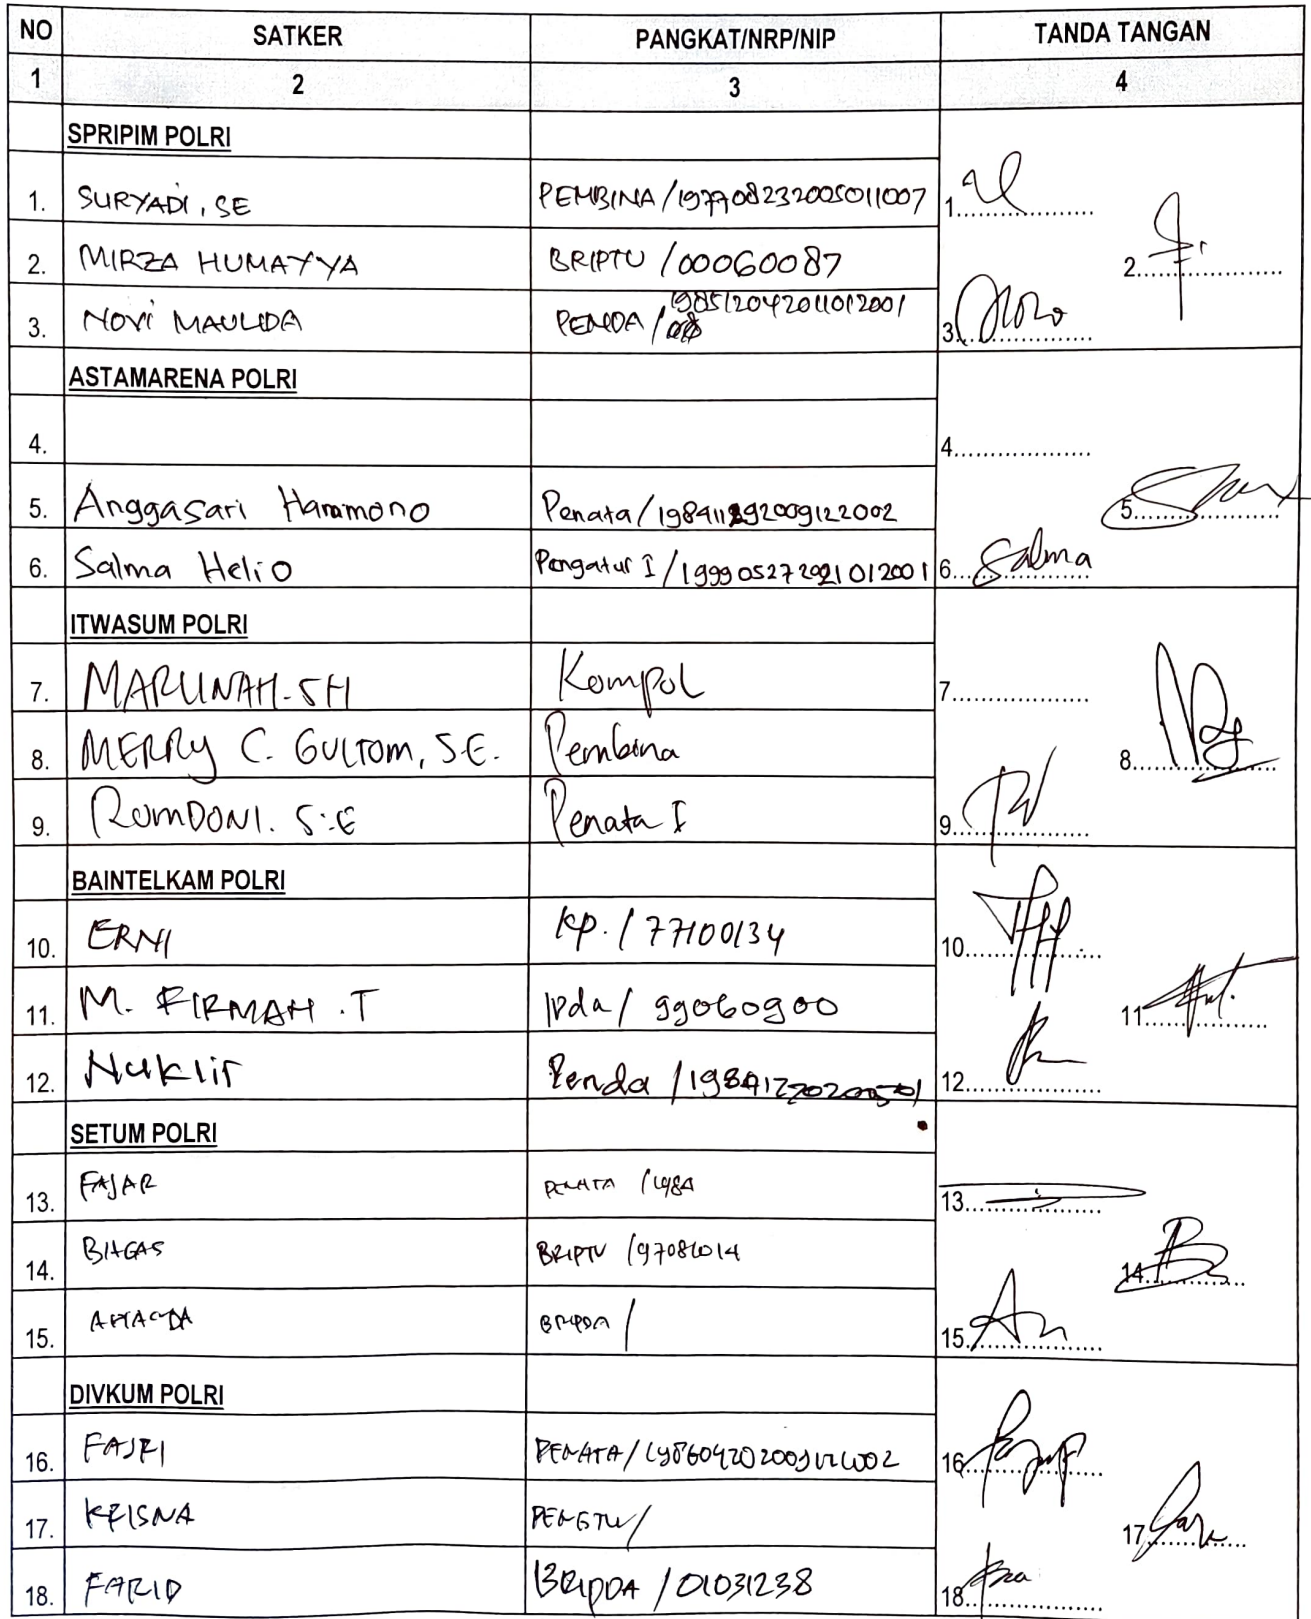 NO SATKER PANGKAT/NRP/NIP TANDA TANGAN
1 2 3 4
SPRIPIM POLRI
1. SURYADI, SE PEMBINA/197708232005011007 1....................
2. MIRZA HUMAYYA BRIPTU/00060087 2....................
3. NOVI MAULIDA PENDA/198512042011012001 3....................
ASTAMARENA POLRI
4. 4....................
5. Anggasari Harmono Penata/ 5....................
6. Salma Helio Pengatur I/199905272021012001 6. Salma
ITWASUM POLRI
7. MARUNAH-SH Kompol 7....................
8. MERRY C. GULTOM, S.E. Pembina 8....................
9. ROMDONI. S.E Penata I 9....................
BAINTELKAM POLRI
10. ERNI KP./77100134 10....................
11. M. FIRMAH.T Ipda/99060900 11....................
12. Nuklir Penda/ 12....................
SETUM POLRI
13. FAJAR PENATA/1984 13....................
14. BAGAS BRIPTU/97081014 14....................
15. BRIPDA/ 15....................
DIVKUM POLRI
16. FAJRI PENATA/ 16....................
17. KRISNA PENGTU/ 17....................
18. FARID BRIPDA/01031238 18....................